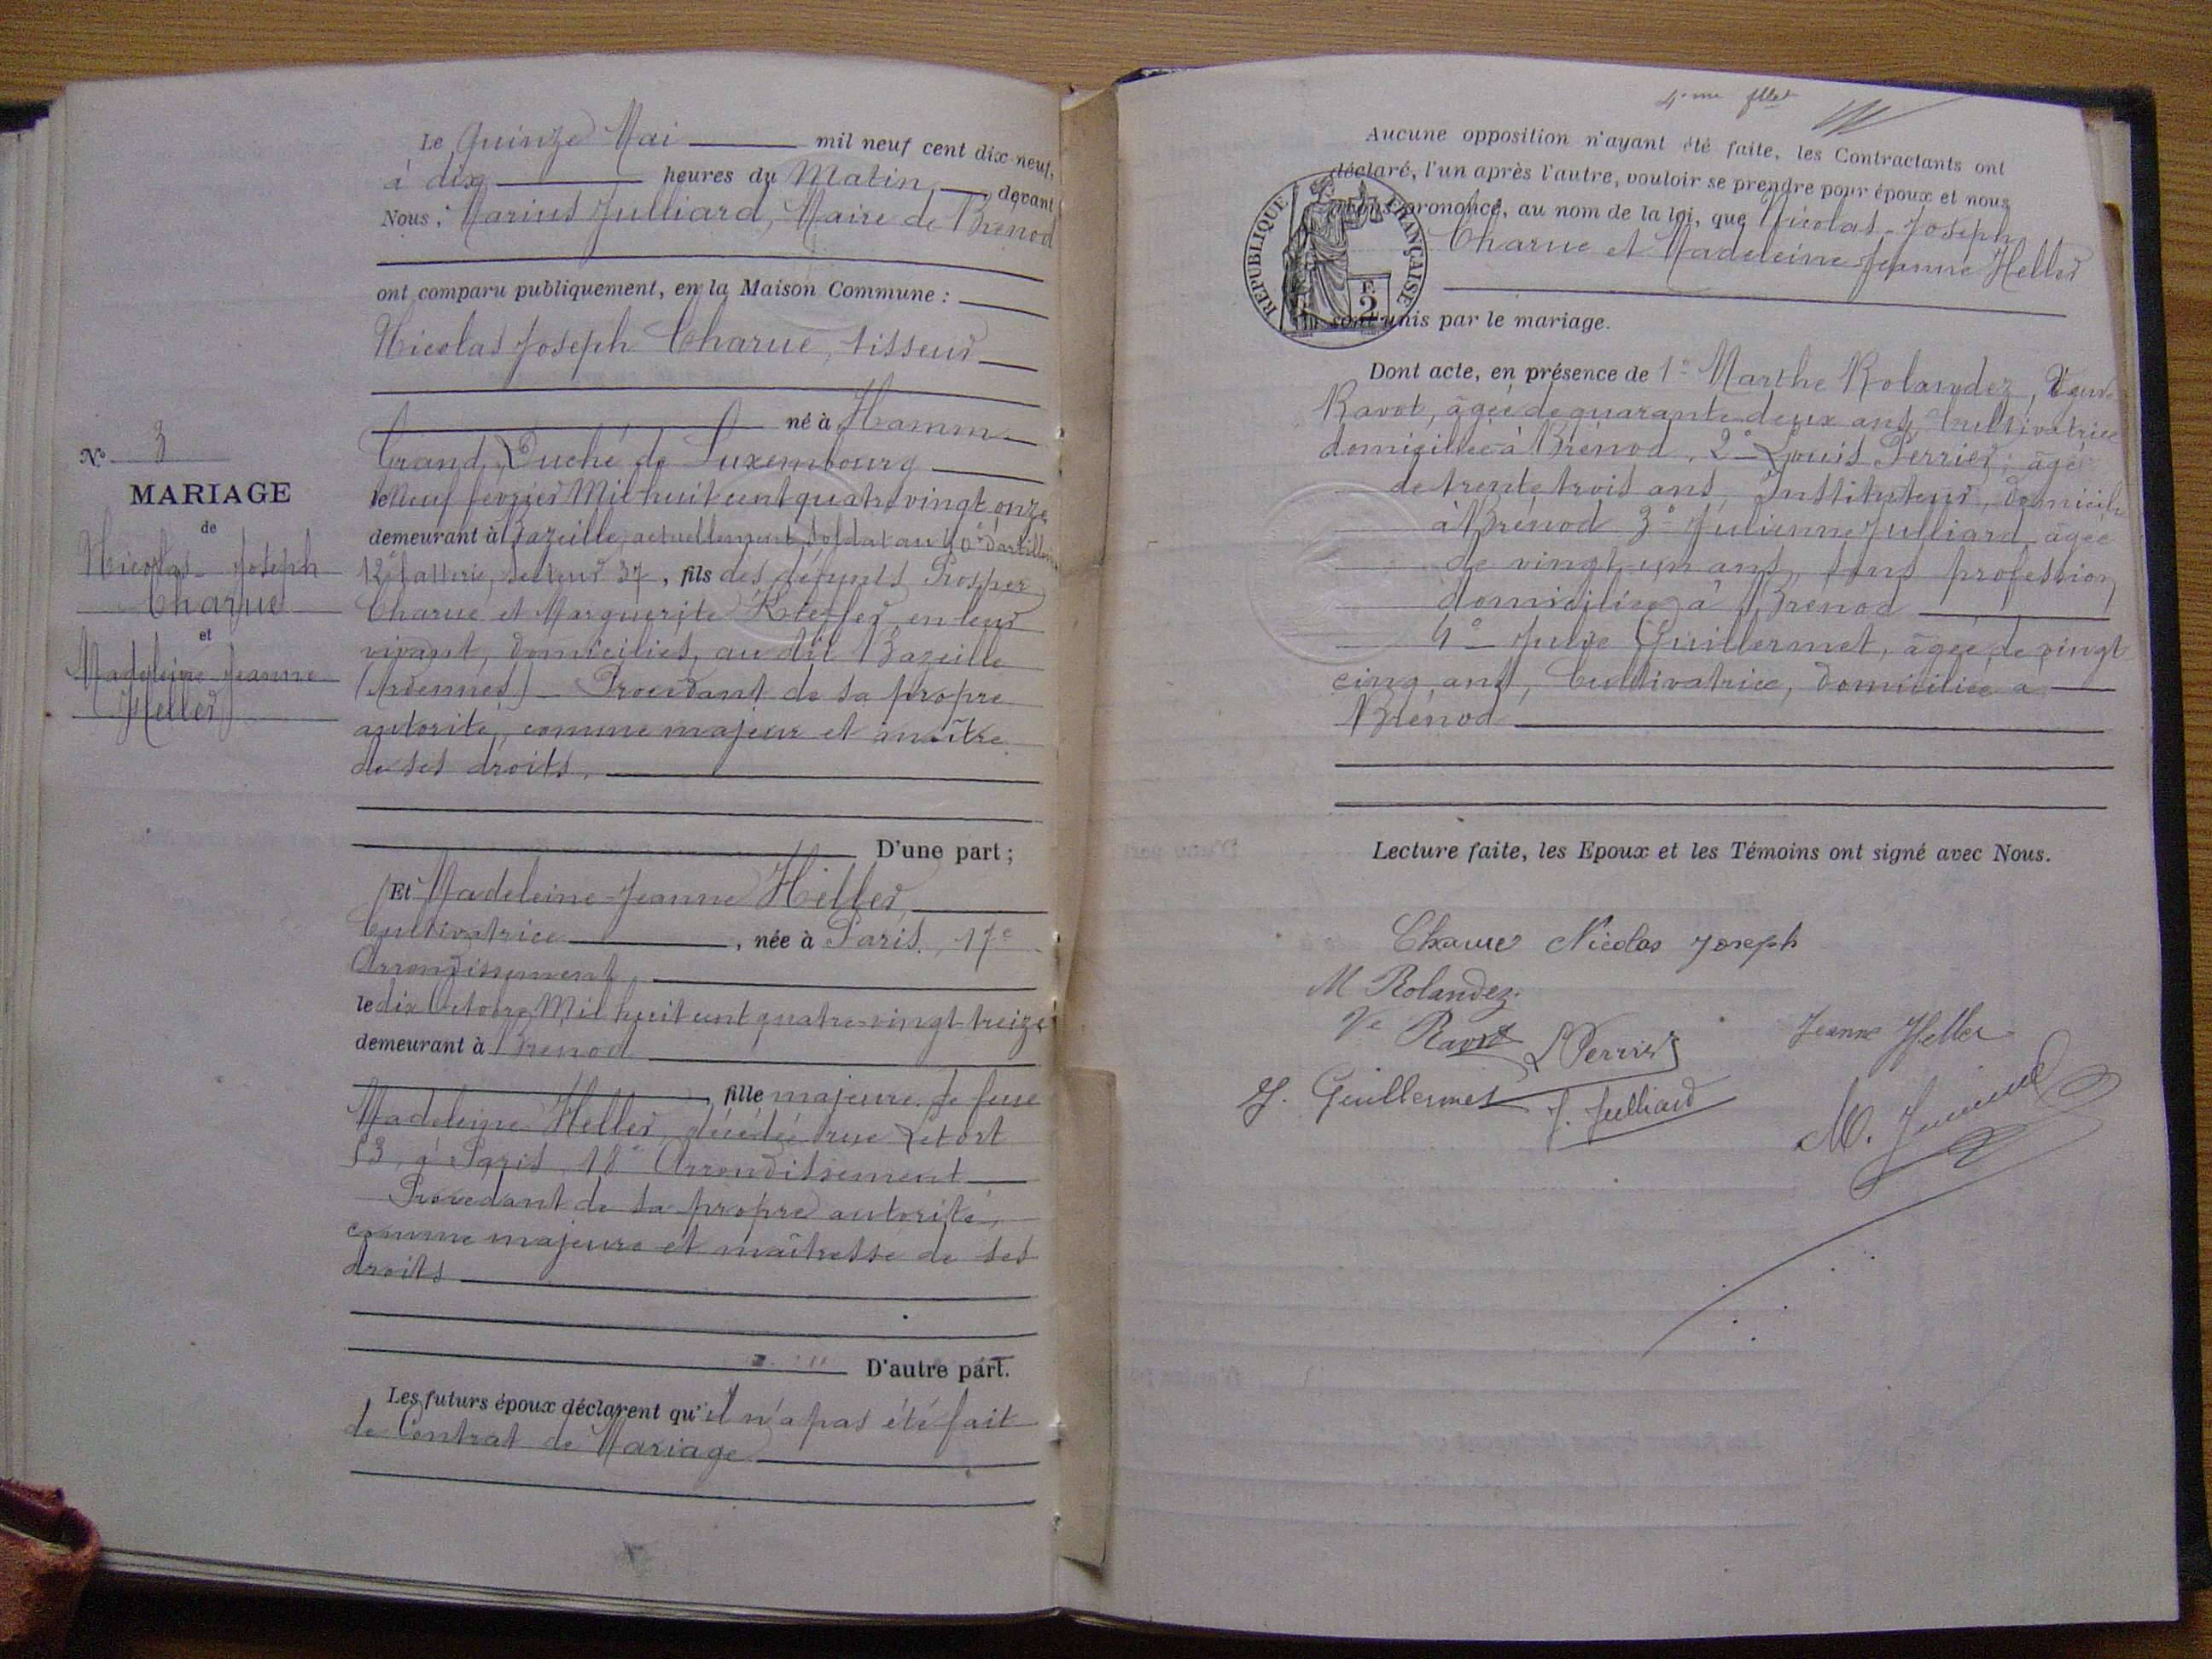 Le quinze Mai mil neuf cent dix-neuf,
à dix heures du Matin, devant
Nous, Marius Julliard, Maire de Brénod
ont comparu publiquement, en la Maison Commune :
Nicolas Joseph Charue, tisseur
né à Hamm
Grand Duché de Luxembourg
le neuf février Mil huit cent quatre vingt onze
demeurant à Bazeille, actuellement soldat au d'artillerie
12e batterie, secteur 37, fils des défunts Prosper
Charue et Marguerite Kieffer, en leur
vivant, domiciliés, au dit Bazeille
(Ardennes) - Procédant de sa propre
autorité, comme majeur et maître
de ses droits.
D'une part ;
No 3
MARIAGE
de
Nicolas-Joseph
Charue
et
Madeleine Jeanne
Heller
Et Madeleine-Jeanne Heller,
Cultivatrice, née à Paris, 17e
Arrondissement,
le dix Octobre Mil huit cent quatre-vingt-treize
demeurant à Brénod
, fille majeure de feue
Madeleine Heller, décédée rue Letort
53, à Paris, 18e Arrondissement
Procédant de sa propre autorité,
comme majeure et maîtresse de ses
droits
D'autre part.
Les futurs époux déclarent qu'il n'a pas été fait
de Contrat de Mariage
4eme fllet
Aucune opposition n'ayant été faite, les Contractants ont
déclaré, l'un après l'autre, vouloir se prendre pour époux et nous
avons prononcé, au nom de la loi, que Nicolas-Joseph
Charue et Madeleine Jeanne Heller
REPUBLIQUE FRANÇAISE
F.
2
sont unis par le mariage.
Dont acte, en présence de 1° Marthe Rolandez, Veuve
Ravot, âgée de quarante deux ans, Cultivatrice
domiciliée à Brénod, 2° Louis Perrier, âgé
de trente trois ans, Instituteur, domicilié
à Brénod 3° Julienne Julliard, âgée
de vingt-un ans, sans profession,
domiciliée à Brénod
4° Julie Guillermet, âgée de vingt
cinq ans, Cultivatrice, domiciliée à
Brénod
Lecture faite, les Epoux et les Témoins ont signé avec Nous.
Charue Nicolas Joseph
M Rolandez
Ve Ravot
L Perrier
Jeanne Heller
J. Guillermet
J. Julliard
M. Julliard